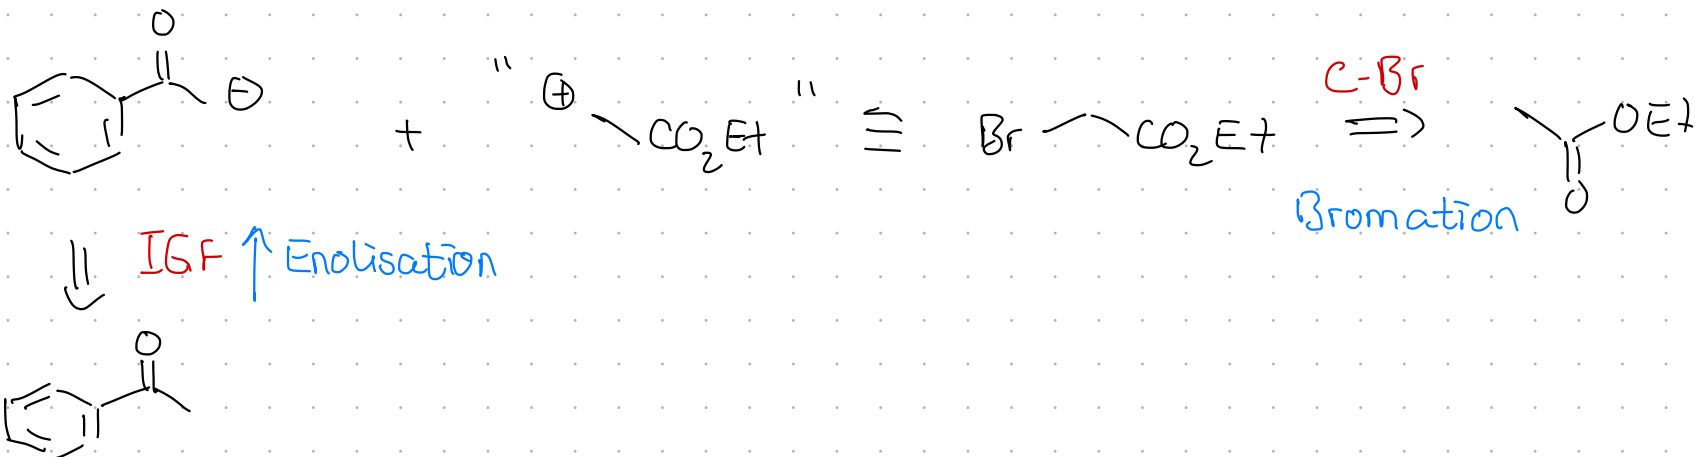 O
⊖ + " ⊕ CO₂Et " ≡ Br CO₂Et C-Br ⇒ OEt
O
Bromation
⇓ IGF ↑ Enolisation
O